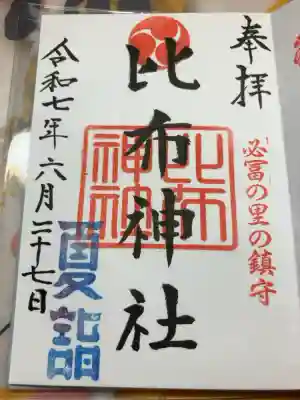 奉拝
「必富」の里の鎮守
比布神社
比布神社
令和七年六月二十七日
夏詣